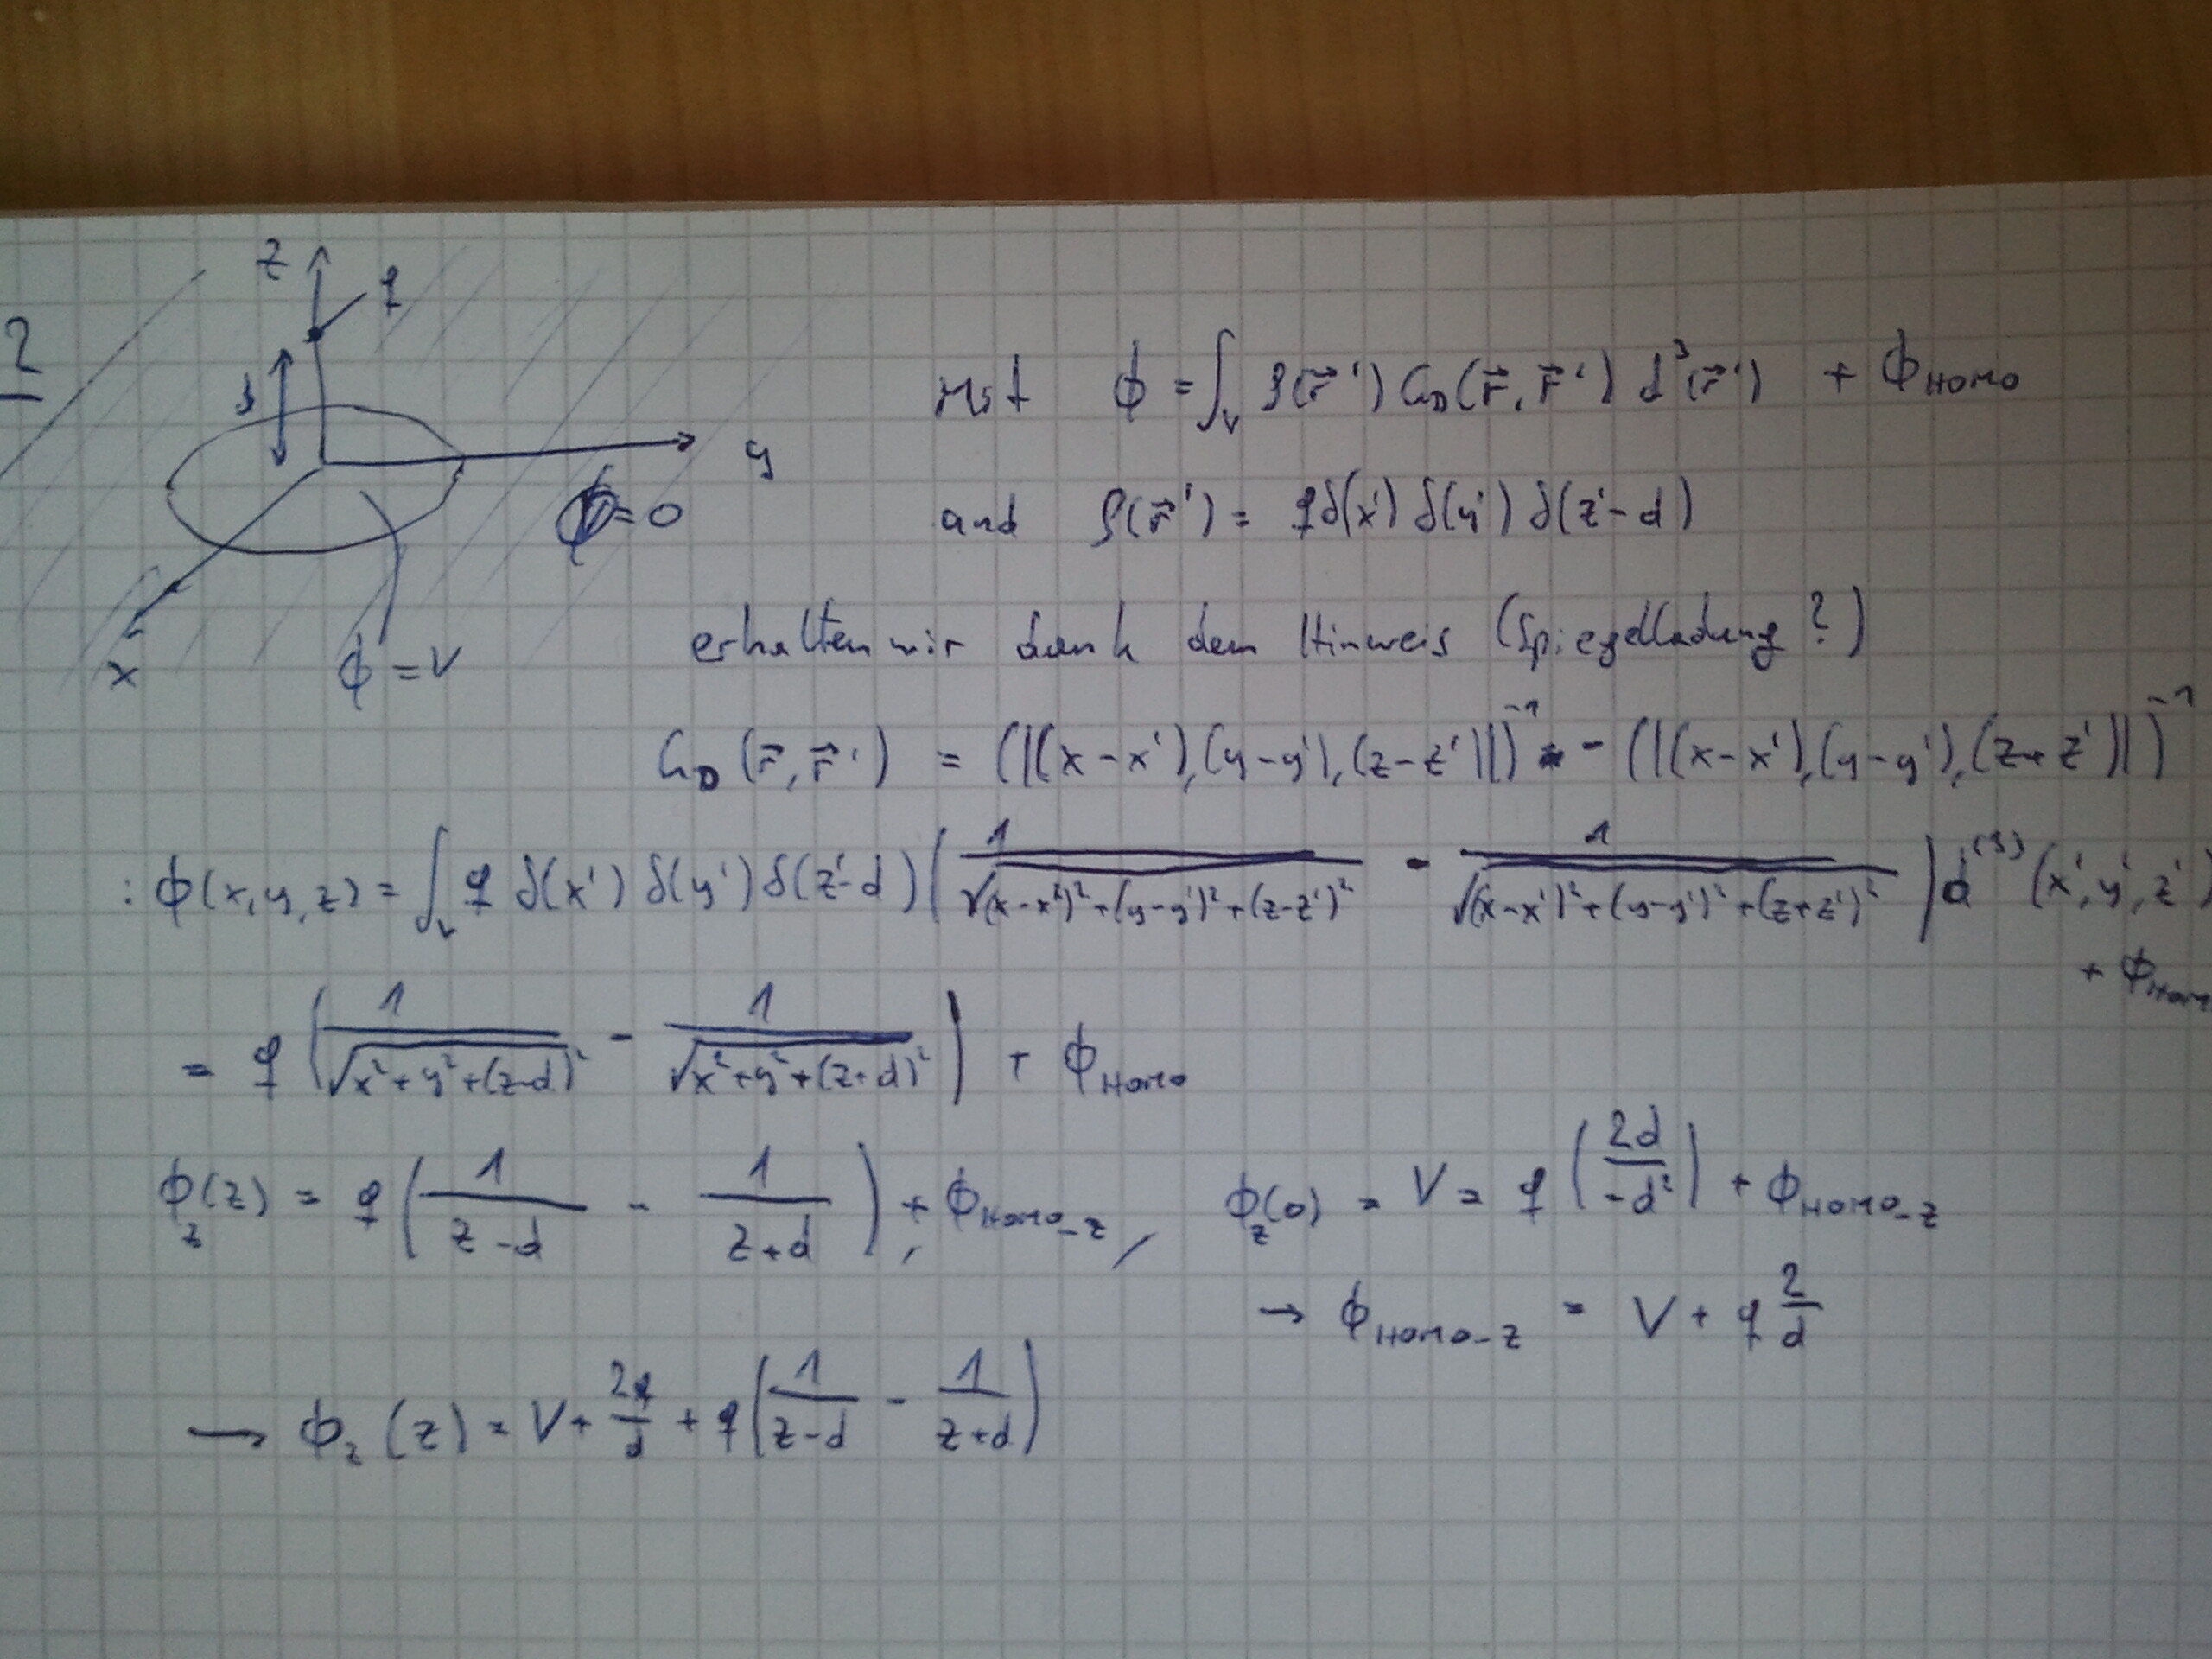 2
z
q
d
y
Φ=0
x
ϕ = V
Mit ϕ = ∫_V ρ(r⃗') G_D(r⃗, r⃗') d³(r⃗') + ϕ_Homo
und ρ(r⃗') = qδ(x') δ(y') δ(z'-d)
erhalten wir dank dem Hinweis (Spiegelladung?)
G_D(r⃗, r⃗') = (|(x-x'),(y-y'),(z-z')|)⁻¹ - (|(x-x'),(y-y'),(z+z')|)⁻¹
: ϕ(x,y,z) = ∫_V q δ(x') δ(y') δ(z'-d) (1/√((x-x')²+(y-y')²+(z-z')²) - 1/√((x-x')²+(y-y')²+(z+z')²)) d⁽³⁾(x',y',z')
+ ϕ_Homo
= q (1/√(x²+y²+(z-d)²) - 1/√(x²+y²+(z+d)²)) + ϕ_Homo
ϕ_z(z) = q (1/(z-d) - 1/(z+d)) + ϕ_Homo_z , ϕ_z(0) = V = q (2d/-d²) + ϕ_Homo_z
→ ϕ_Homo_z = V + q 2/d
→ ϕ_z(z) = V + 2q/d + q (1/(z-d) - 1/(z+d))